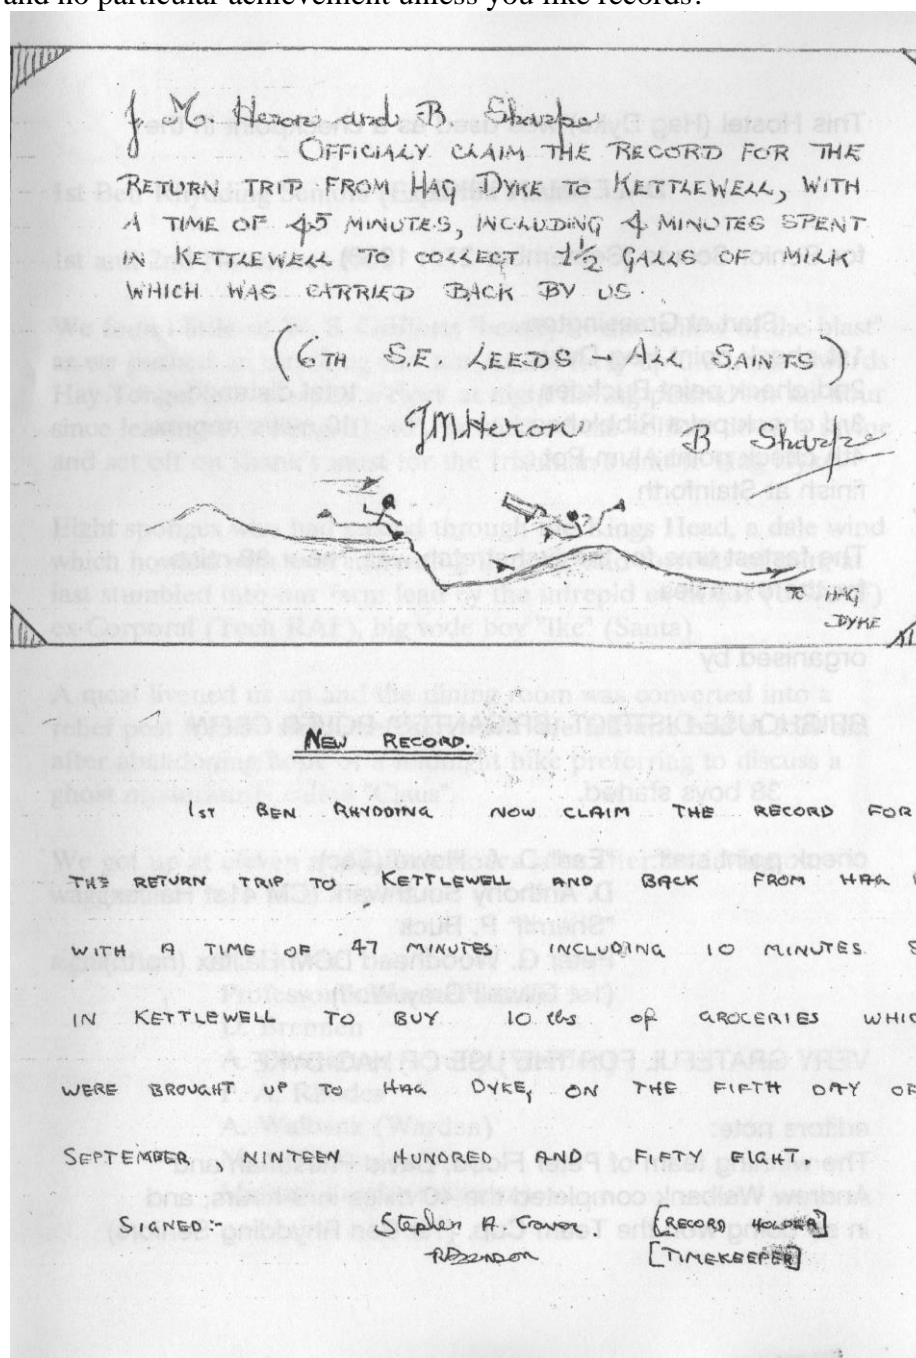 and no particular achievement unless you like records?
J M. Heron and B. Sharpe
OFFICIALY CLAIM THE RECORD FOR THE
RETURN TRIP FROM HAG DYKE TO KETTLEWELL, WITH
A TIME OF 45 MINUTES, INCLUDING 4 MINUTES SPENT
IN KETTLEWELL TO COLLECT 1½ GALLS OF MILK
WHICH WAS CARRIED BACK BY US.
(6TH S.E. LEEDS ALL SAINTS)
J M. Heron B Sharpe
TO HAG
DYKE
NEW RECORD.
1ST BEN RHYDDING NOW CLAIM THE RECORD FOR
THE RETURN TRIP TO KETTLEWELL AND BACK FROM HAG
WITH A TIME OF 47 MINUTES INCLUDING 10 MINUTES
IN KETTLEWELL TO BUY 10 lbs of GROCERIES WHIC
WERE BROUGHT UP TO HAG DYKE, ON THE FIFTH DAY OF
SEPTEMBER, NINTEEN HUNDRED AND FIFTY EIGHT.
SIGNED:- Stephen A. [RECORD HOLDER]
[TIMEKEEPER]